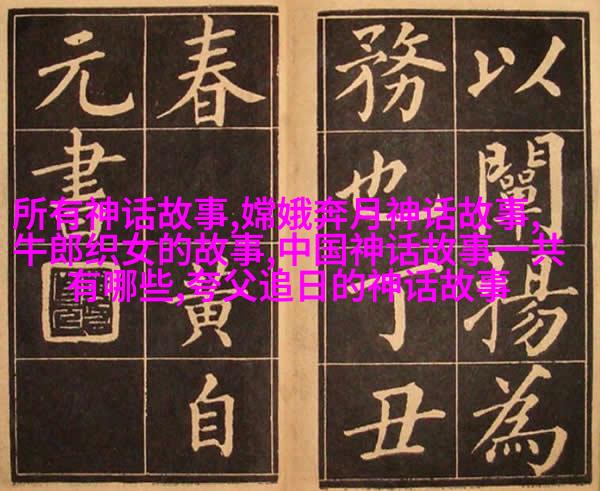 所有神话故事,嫦娥奔月神话故事,
牛郎织女的故事,中国神话故事一共
有哪些,夸父追日的神话故事
以闡揚為
務也丁丑
春黃自
元書